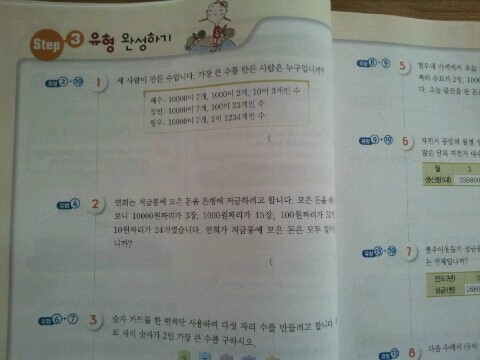 Step 3 유형 완성하기
유형 2+10
1 세 사람이 만든 수입니다. 가장 큰 수를 만든 사람은 누구입니까?
혜수: 10000이 7개, 1000이 2개, 10이 3개인 수
정민: 10000이 7개, 100이 23개인 수
형우: 10000이 7개, 1이 1234개인 수
(
유형 4
2 연희는 저금통에 모은 돈을 은행에 저금하려고 합니다. 모은 돈을
보니 10000원짜리가 3장, 1000원짜리가 15장, 100원짜리가
10원짜리가 24개였습니다. 연희가 저금통에 모은 돈은 모두
니까?
(
유형 6+7
3 숫자 카드를 한 번씩만 사용하여 다섯 자리 수를 만들려고 합니다.
자리 숫자가 2인 가장 큰 수를 구하시오.
유형 8+9
5
짜리 수표가 2장, 1000
다. 오늘
유형 9+10
6 자전거 공장의 월별
많은 달의 자전거
월 3
생산량(대)
7 불우이웃돕기 성금을
는 언제입니까?
연도(년)
성금(원)
8 다음 수에서